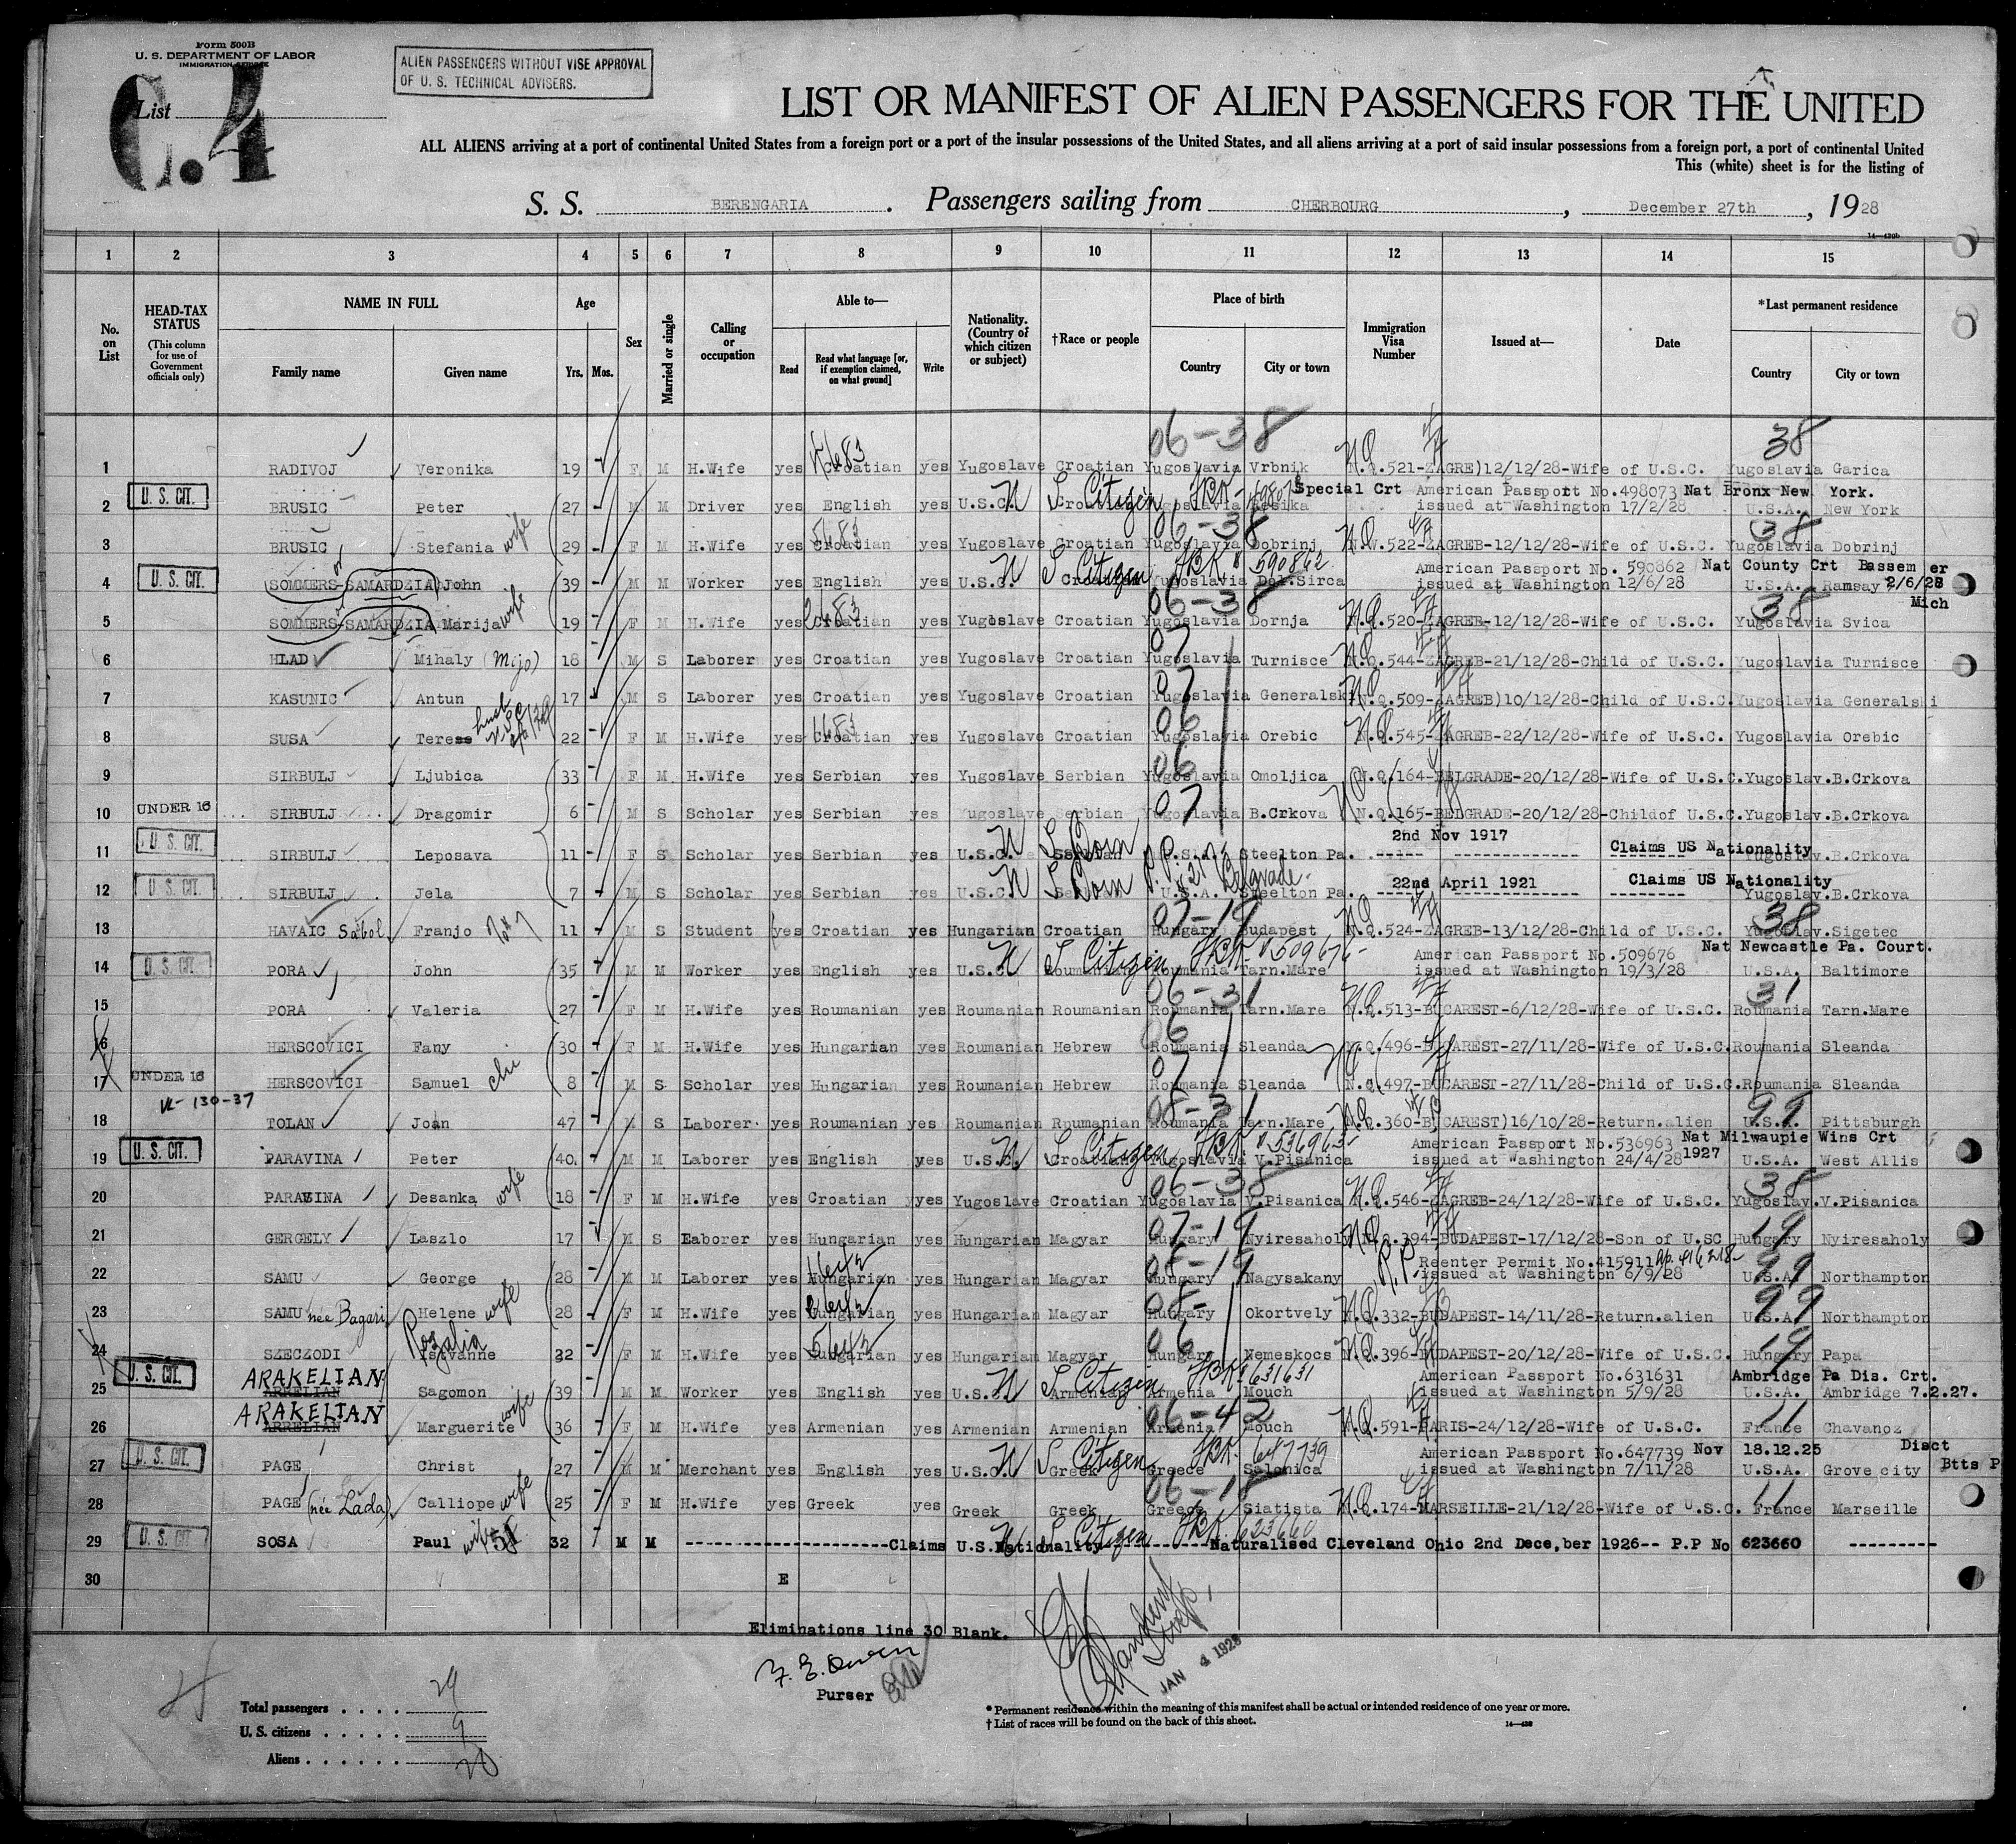 Form 500B
U. S. DEPARTMENT OF LABOR
IMMIGRATION SERVICE
List C.4
ALIEN PASSENGERS WITHOUT VISE APPROVAL
OF U. S. TECHNICAL ADVISERS.
LIST OR MANIFEST OF ALIEN PASSENGERS FOR THE UNITED
ALL ALIENS arriving at a port of continental United States from a foreign port or a port of the insular possessions of the United States, and all aliens arriving at a port of said insular possessions from a foreign port, a port of continental United
This (white) sheet is for the listing of
S. S. BERENGARIA. Passengers sailing from CHERBOURG, December 27th, 1928
14—420b
1 2 3 4 5 6 7 8 9 10 11 12 13 14 15
No. on List
HEAD-TAX STATUS (This column for use of Government officials only)
NAME IN FULL Family name Given name
Age Yrs. Mos.
Sex
Married or single
Calling or occupation
Able to— Read Read what language [or, if exemption claimed, on what ground] Write
Nationality. (Country of which citizen or subject)
†Race or people
Place of birth Country City or town
Immigration Visa Number
Issued at—
Date
*Last permanent residence Country City or town
06-38 38
1 RADIVOJ Veronika 19 F M H.Wife yes Croatian yes Yugoslave Croatian Yugoslavia Vrbnik N.Q.521-ZAGRE)12/12/28-Wife of U.S.C. Yugoslavia Garica
U. S. CIT. U S Citizen Special Crt American Passport No.498073 Nat Bronx New York.
2 BRUSIC Peter 27 M M Driver yes English yes U.S.C. issued at Washington 17/2/28 U.S.A. New York
06-38 38
3 BRUSIC Stefania wife 29 F M H.Wife yes Croatian yes Yugoslave Croatian Yugoslavia Dobrinj 522-ZAGREB-12/12/28-Wife of U.S.C. Yugoslavia Dobrinj
U. S. CIT. or U S Citizen 590862 American Passport No. 590862 Nat County Crt Bassem er
4 SOMMERS-SAMARDZIA John 39 M M Worker yes English yes U.S.C. Yugoslavia Dol.Sirca issued at Washington 12/6/28 U.S.A. Ramsay 2/6/28
06-38 38 Mich
5 SOMMERS-SAMARDZIA Marija wife 19 F M H.Wife yes Croatian yes Yugoslave Croatian Yugoslavia Dornja N.Q.520-ZAGREB-12/12/28-Wife of U.S.C. Yugoslavia Svica
07
6 HLAD Mihaly (Mijo) 18 M S Laborer yes Croatian yes Yugoslave Croatian Yugoslavia Turnisce N.Q.544-ZAGREB-21/12/28-Child of U.S.C. Yugoslavia Turnisce
07
7 KASUNIC Antun 17 M S Laborer yes Croatian yes Yugoslave Croatian Yugoslavia Generalski N.Q.509-ZAGREB)10/12/28-Child of U.S.C. Yugoslavia Generalski
06
8 SUSA Terese 22 F M H.Wife yes Croatian yes Yugoslave Croatian Yugoslavia Orebic N.Q.545-ZAGREB-22/12/28-Wife of U.S.C. Yugoslavia Orebic
06
9 SIRBULJ Ljubica 33 F M H.Wife yes Serbian yes Yugoslave Serbian Yugoslavia Omoljica N.Q.164-BELGRADE-20/12/28-Wife of U.S.C. Yugoslav.B.Crkova
07
10 UNDER 16 SIRBULJ Dragomir 6 M S Scholar yes Serbian yes Yugoslave Serbian Yugoslavia B.Crkova N.Q.165-BELGRADE-20/12/28-Childof U.S.C. Yugoslav.B.Crkova
U. S. CIT. U S Born 2nd Nov 1917 Claims US Nationality
11 SIRBULJ Leposava 11 F S Scholar yes Serbian yes U.S.C. Steelton Pa. Yugoslav.B.Crkova
U. S. CIT. U S Born P.P. Belgrade 22nd April 1921 Claims US Nationality
12 SIRBULJ Jela 7 M S Scholar yes Serbian yes U.S.C. U.S.A. Steelton Pa. Yugoslav.B.Crkova
07-19 38
13 HAVAIC Sabol Franjo 11 M S Student Croatian yes Hungarian Croatian Hungary Budapest N.Q.524-ZAGREB-13/12/28-Child of U.S.C. Yugoslav.Sigetec
U. S. CIT. U S Citizen 509676 American Passport No.509676 Nat Newcastle Pa. Court.
14 PORA John 35 M M Worker yes English yes U.S.C. Roumania Tarn.Mare issued at Washington 19/3/28 U.S.A. Baltimore
06-31 31
15 PORA Valeria 27 F M H.Wife yes Roumanian yes Roumanian Roumanian Roumania Tarn.Mare N.Q.513-BUCAREST-6/12/28-Wife of U.S.C. Roumania Tarn.Mare
06
16 HERSCOVICI Fany 30 F M H.Wife yes Hungarian yes Roumanian Hebrew Roumania Sleanda N.Q.496-BUCAREST-27/11/28-Wife of U.S.C. Roumania Sleanda
07
17 UNDER 16 HERSCOVICI Samuel 8 M S Scholar yes Hungarian yes Roumanian Hebrew Roumania Sleanda N.Q.497-BUCAREST-27/11/28-Child of U.S.C. Roumania Sleanda
130-37 08-31 99
18 TOLAN Joan 47 M S Laborer yes Roumanian yes Roumanian Roumanian Roumania Tarn.Mare N.Q.360-BUCAREST)16/10/28-Return.alien U.S.A. Pittsburgh
U. S. CIT. U S Citizen 536963 American Passport No.536963 Nat Milwaupie Wins Crt
19 PARAVINA Peter 40 M M Laborer yes English yes U.S.C. Croatian Yugoslavia V.Pisanica issued at Washington 24/4/28 1927 U.S.A. West Allis
06-38 38
20 PARAVINA Desanka wife 18 F M H.Wife yes Croatian yes Yugoslave Croatian Yugoslavia V.Pisanica N.Q.546-ZAGREB-24/12/28-Wife of U.S.C. Yugoslav.V.Pisanica
07-19 19
21 GERGELY Laszlo 17 M S Eaborer yes Hungarian yes Hungarian Magyar Hungary Nyiresaholy N.Q.394-BUDAPEST-17/12/28-Son of U.SC Hungary Nyiresaholy
08-19 P.P. Reenter Permit No.415911 99
22 SAMU George 28 M M Laborer yes Hungarian yes Hungarian Magyar Hungary Nagysakany issued at Washington 6/9/28 U.S.A. Northampton
08- 99
23 SAMU née Bagari Helene wife 28 F M H.Wife yes Hungarian yes Hungarian Magyar Hungary Okortvely N.Q.332-BUDAPEST-14/11/28-Return.alien U.S.A. Northampton
Rozalia 06 19
24 SZECZODI Istvanne 32 F M H.Wife yes Hungarian yes Hungarian Magyar Hungary Nemeskocs N.Q.396-BUDAPEST-20/12/28-Wife of U.S.C. Hungary Papa
U. S. CIT. ARAKELIAN U S Citizen 631631 American Passport No.631631 Ambridge Pa Dis. Crt.
25 ARKELIAN Sagomon 39 M M Worker yes English yes U.S.C. Armenian Armenia Mouch issued at Washington 5/9/28 U.S.A. Ambridge 7.2.27.
ARAKELIAN 06-42 11
26 ARKELIAN Marguerite wife 36 F M H.Wife yes Armenian yes Armenian Armenian Armenia Mouch N.Q.591-PARIS-24/12/28-Wife of U.S.C. France Chavanoz
U. S. CIT. U S Citizen 647739 American Passport No.647739 Nov 18.12.25 Disct
27 PAGE Christ 27 M M Merchant yes English yes U.S.C. Greek Greece Salonica issued at Washington 7/11/28 U.S.A. Grove city Btts P
06-18 11
28 PAGE (née Lada) Calliope wife 25 F M H.Wife yes Greek yes Greek Greek Greece Siatista N.Q.174-MARSEILLE-21/12/28-Wife of U.S.C. France Marseille
U. S. CIT. U S Citizen 623660
29 SOSA Paul 32 M M Claims U.S. Nationality Naturalised Cleveland Ohio 2nd Dece,ber 1926-- P.P No 623660
30 E
Eliminations line 30 Blank.
Purser
JAN 4 1928
Total passengers 29
U. S. citizens 9
Aliens 20
* Permanent residence within the meaning of this manifest shall be actual or intended residence of one year or more.
† List of races will be found on the back of this sheet.